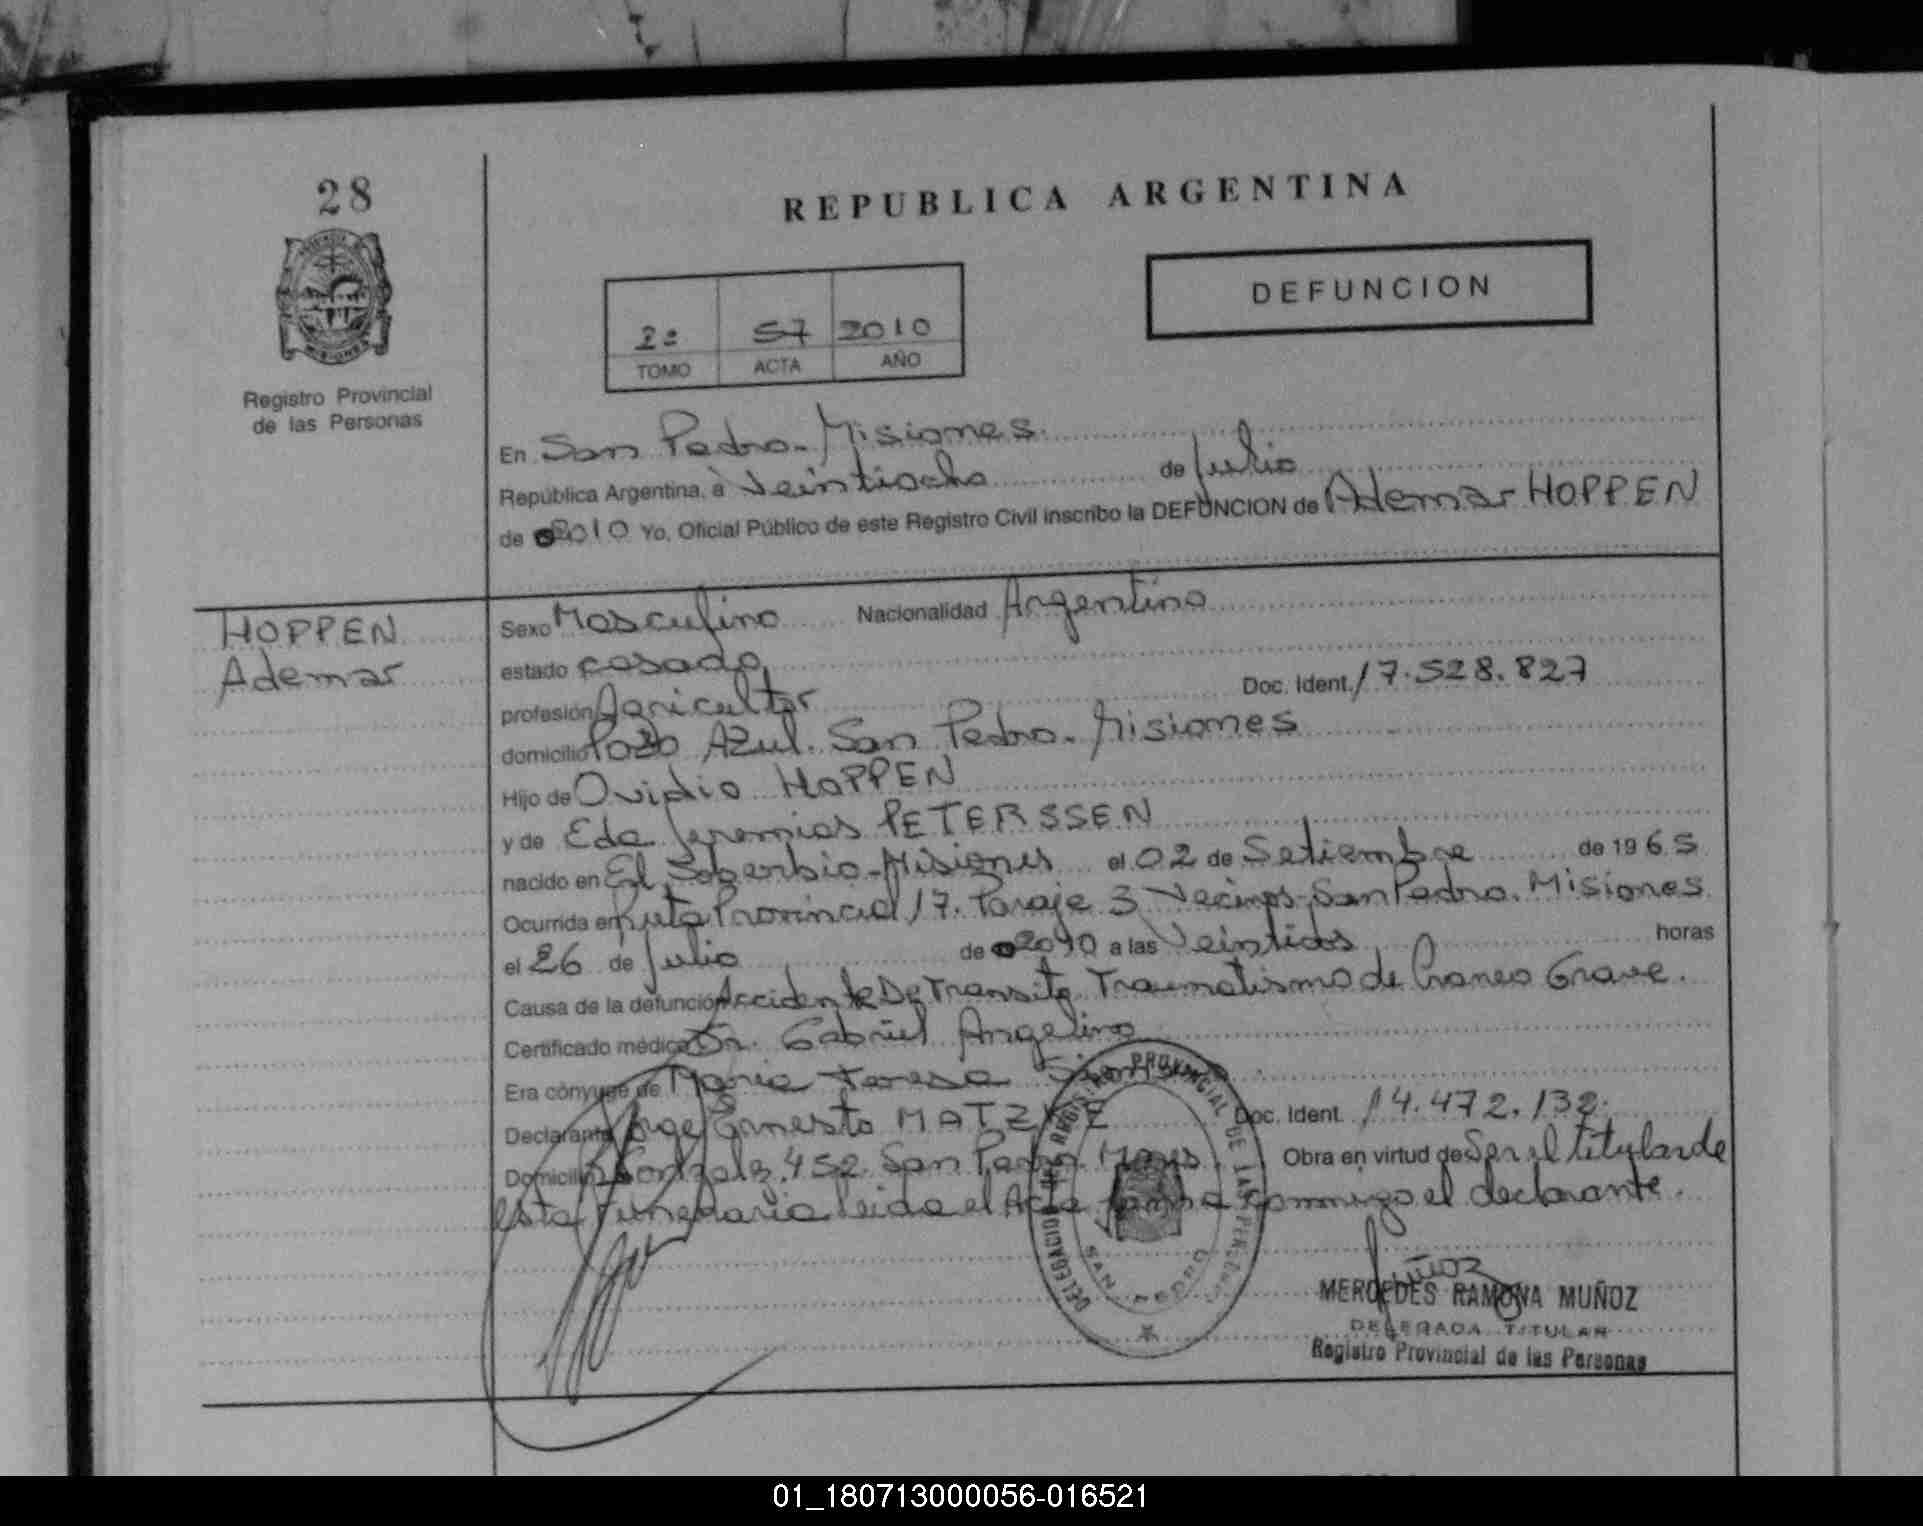 28
REPUBLICA ARGENTINA
DEFUNCION
2º 57 2010
TOMO ACTA AÑO
Registro Provincial
de las Personas
En San Pedro - Misiones
República Argentina, a Veintiocho de Julio
de 2010 Yo, Oficial Público de este Registro Civil inscribo la DEFUNCION de Ademar HOPPEN
HOPPEN
Ademar
Sexo Masculino Nacionalidad Argentino
estado casado
profesión Agricultor Doc. Ident. 17.528.827
domicilio Pozo Azul. San Pedro - Misiones
Hijo de Ovidio HOPPEN
y de Eda Jeremias PETERSSEN
nacido en El Soberbio - Misiones el 02 de Setiembre de 1965
Ocurrida en Ruta Provincial 17. Paraje 3 Vecinos. San Pedro. Misiones
el 26 de Julio de 2010 a las Veintidos horas
Causa de la defunción Accidente De Transito Traumatismo de Craneo Grave.
Certificado médico Dr. Gabriel Angelino
Era cónyuge de Maria Teresa
Declarante Jorge Ernesto MATZKE Doc. Ident. 14.472.132.
Domicilio 452. San Pedro Mnes Obra en virtud de Ser el titular de
esta Funeraria leida el Acta firma conmigo el declarante.
DELEGACION REGISTRO PROVINCIAL DE LAS PERSONAS
SAN PEDRO
Muñoz
MERCEDES RAMONA MUÑOZ
DELEGADA TITULAR
Registro Provincial de las Personas
01_180713000056-016521